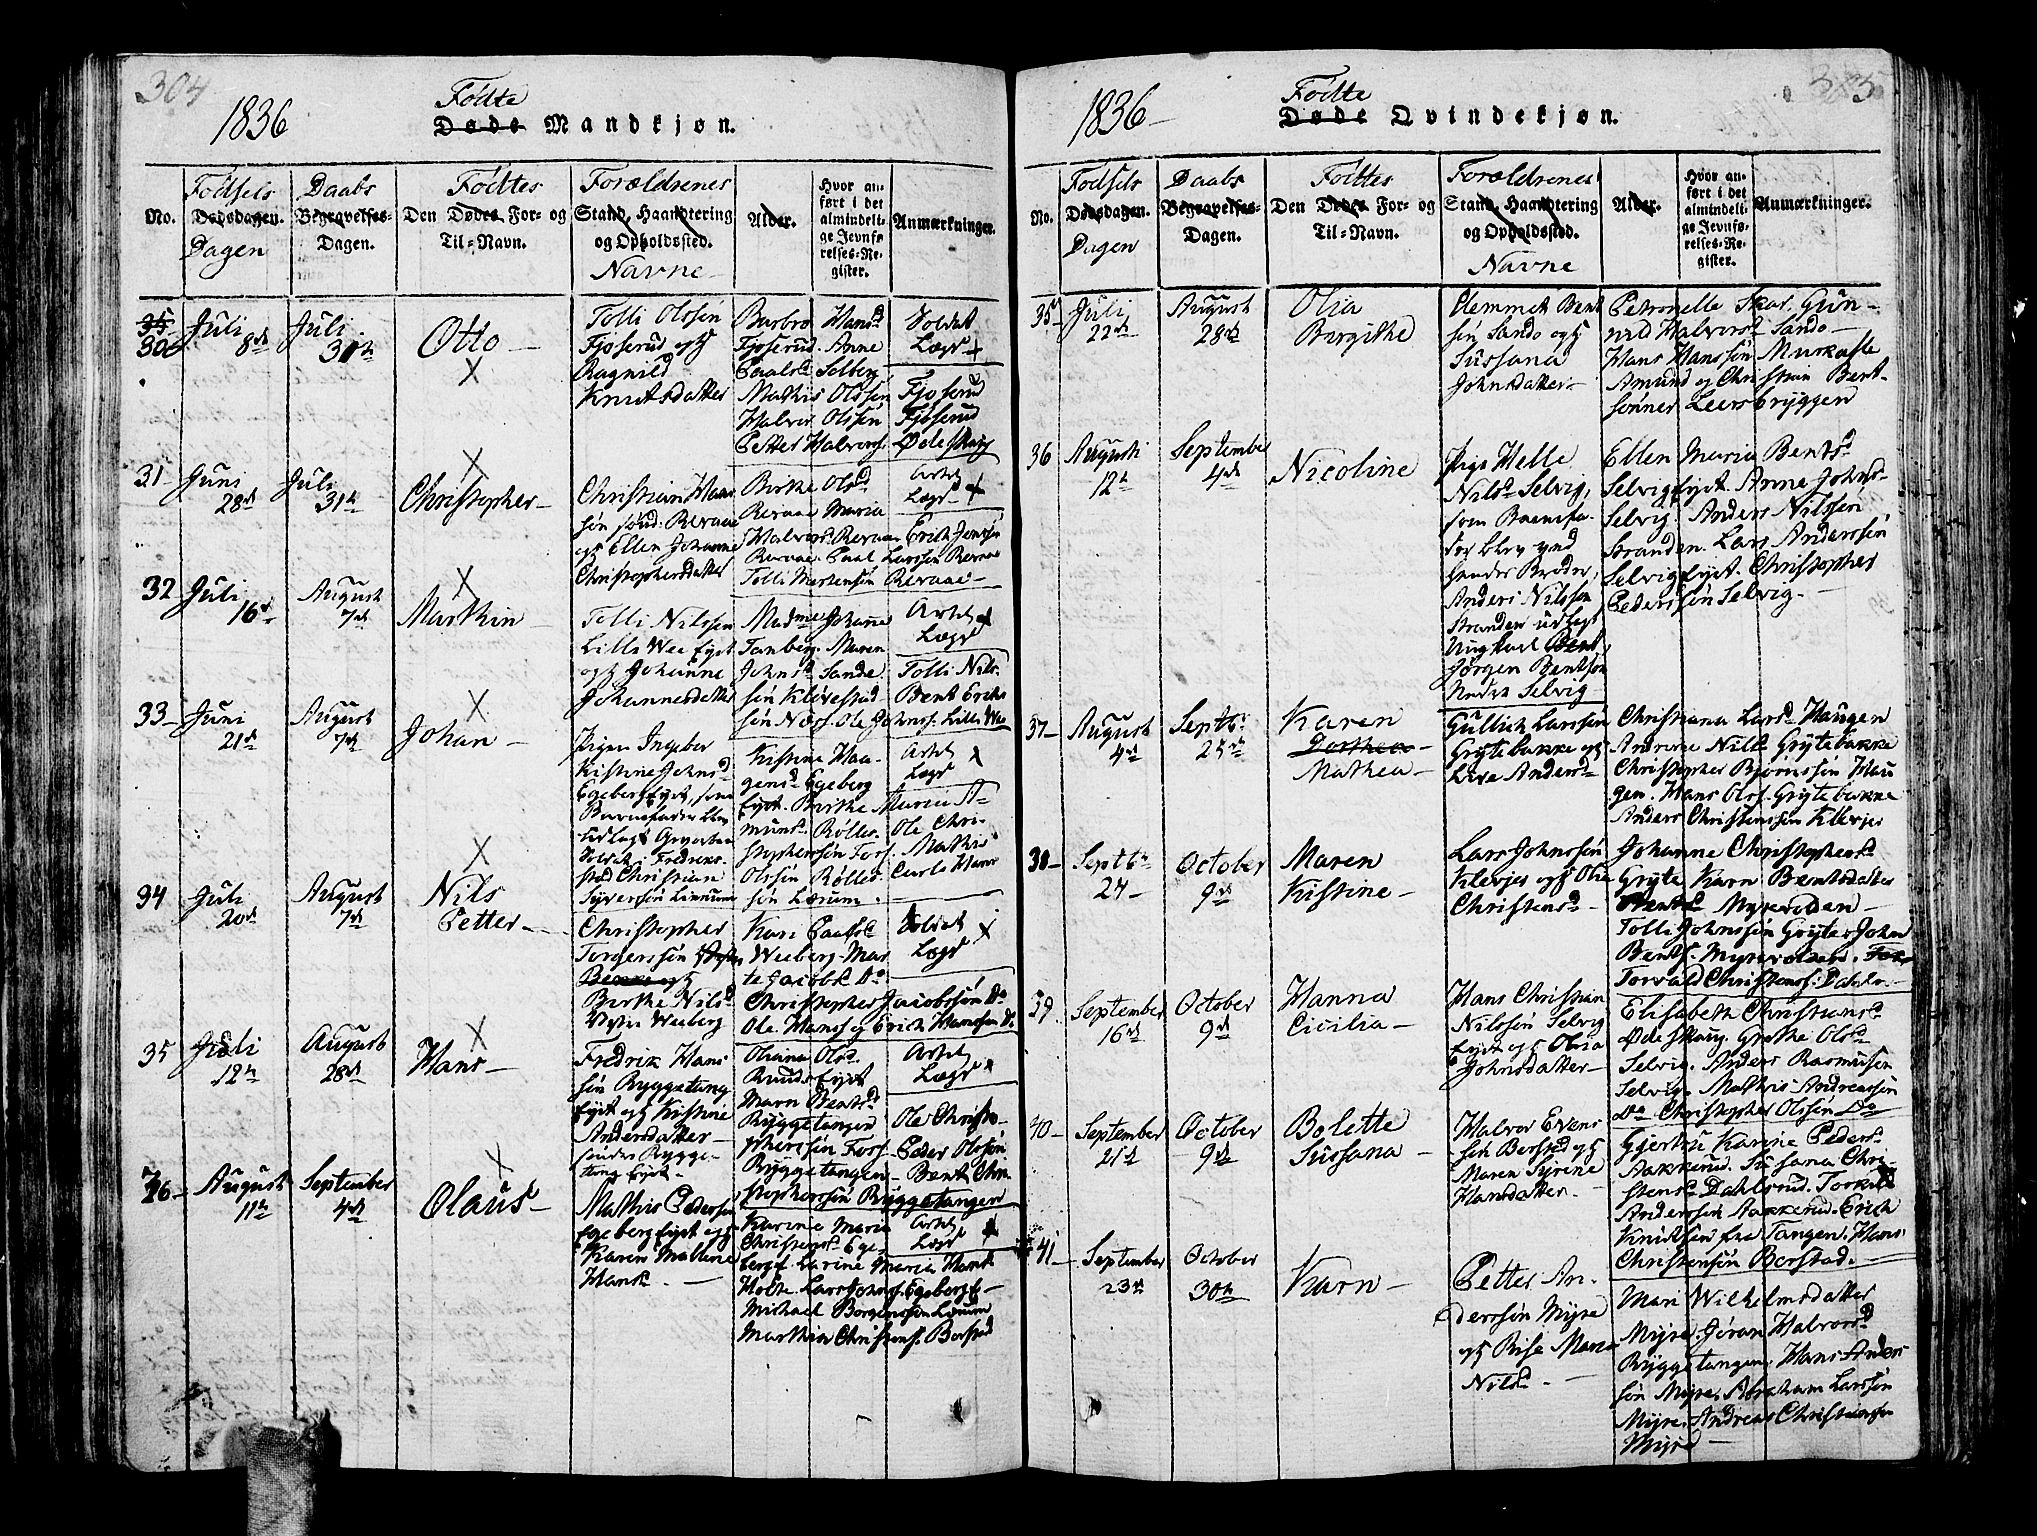 304
1836
Fødte
Døde Mandkjøn.
No.
Fødsels
Dødsdagen.
Dagen
Daabs
Begravelses-
Dagen.
Fødtes
Den Dødes For- og
Til-Navn.
Forældrenes
Stand, Haandtering
og Opholdssted.
Navne
Alder.
Hvor an-
ført i det
almindeli-
ge Jevnfø-
relses-Re-
gister.
Anmærkninger.
35
30
Juli
8de
Juli
31te
Otto
Tolli Olssøn
Fjøserud og
Ragnild
Knutsdatter
Barbro Hansd
Fjøserud. Anne
Paalsd Solberg
Mathis Olssøn Fjøserud
Halvor Olssøn Fjøserud
Petter Halvors. Ødeskaug
Soldat
Lægd
31
Juni
28de
Juli
31te
Christopher
Christian Hans
søn sønd. Revaae
og Ellen Johanne
Christophersdatter
Birthe Olsd
Revaae Maria
Halvorsd Revaae Erich Jenssøn
Revaae. Paal Larssøn Revaae
Tolli Mortensøn Revaae
Artel
Lægd
32
Juli
16de
August
7de
Marthin
Tolli Nilssøn
Lille Wee Eyet
og Johanne
Johannesdatter
Madme Johanne
Tanberg. Maren
Johnsd Sande. Tolli Nils-
søn Kløvestad Bent Erich
søn Næss. Ole Johnss. Lille Wee
Artel
Lægd
33
Juni
21de
August
7de
Johan
Pigen Ingebor
Kistine Johnsd
Egeberg Eyet, som
Barnefader blev
udlagt Gevorben
Soldat i Fredriks-
stad Christian
Syverssøn Linnum
Kistine Haa-
gensd Egeberg
Eyet. Birthe Maria A-
munsd Rølles. Ole Chri-
stopherssøn Foss. Mathis
Olssøn Rølles. Carl Hans
søn Lærum.
Artel
Lægd
34
Juli
20de
August
7de
Nils
Petter
Christopher
Torgerssøn
Birthe Nilsd
Weeberg
Kari Paalsd
Weeberg Mar-
te Jacobsd Do
Christopher Jacobssøn Do
Ole Hanss og Erich Hanssøn D.
Soldat
Lægd
35
Juli
12te
August
28de
Hans
Fredrik Hans
søn Ryggetang
Eyet og Kistine
Andersdatter
søndre Rygge-
tang Eyet.
Oliana Olsd.
Ruuds Eyet
Marn Bentsd
Ryggetangen Ole Christo-
pherssøn Foss. Peder Olssøn
Ryggetangen. Bent Chri-
stopherssøn Ryggetangen
Artel
Lægd
36
August
11te
September
4de
Olaus
Mathis Pederssøn
Egeberg Eyet og
Karen Mallene
Hansd.
Karine Maria
Christensd Ege-
berg E. Larine Maria Hansd
Holte. Lars Johnss. Egeberg E
Michael Borgerssøn Lærum
Marthin Christens. Borstad
Artel
Lægd
1836
Fødte
Døde Qvindekjøn.
No.
Fødsels
Dødsdagen.
Dagen
Daabs
Begravelses-
Dagen.
Fødtes
Den Dødes For- og
Til-Navn.
Forældrenes
Stand, Haandtering
og Opholdssted.
Navne
Alder.
Hvor an-
ført i det
almindeli-
ge Jevnfø-
relses-Re-
gister.
Anmærkninger.
35
Juli
22de
August
28de
Olia
Birgithe
Clemmet Bent
søn Sando og
Sussana
Johnsdatter
Petronelle Skar. Gun-
nild Halvorsd Sando
Hans Hanssøn Murkaste
Amund og Christian Bent-
sønner Leersbryggen
36
August
12te
September
4de
Nicoline
Pige Helle
Nilsd Selvig,
som Barnefa-
der blev
hendes Broder,
Anders Nilssøn
Stranden udlagt
Ungkarl Bent
Jørgen Bentsøn
Nedre Selvig
Ellen Maria Bentsd
Selvig Eyet. Anne Johns-
Selvig. Anders Nilssøn
Stranden. Lars Anderssøn
Selvig Eyet. Christopher
Pederssøn Selvig.
37
August
4de
Septbr
25de
Karen
Dorthea
Mathea
Gullich Larssøn
Grytebakke og
Live Andersd
Christiana Larsd Haugen
Andrine Nilsd Grytebakke
Christopher Bjørnssøn Hau
gen. Hans Olss. Grytebakke
Anders Christenssøn Klevjer
38
Septbr
24
October
9de
Maren
Kistine
Lars Johnssøn
Klevjes og Olia
Christensd
Johanne Christophersd
Gryte. Karn Bentsdatter
Bentsd Myrvolden
Tolli Johnssøn Gryte. John
Bents. Myrvolden.
Torvald Christens. Dahler
39
September
16de
October
9de
Hanna
Cicilia
Hans Christian
Nilssøn Selvig
Eyet og Olria
Johnsdatter
Elisabeth Christiansd
Ødeskaug. Grethe Olsd
Selvig. Anders Rasmusen
Selvig. Mathis Andreassøn
Do Christopher Olssøn Do
40
September
21de
October
9de
Bolette
Sussana
Halvor Evens
søn Berstad og
Maren Syrine
Hansdatter
Gjertru Karine Peders-
Aakkerud. Sussana Chri-
stensd Dahlsrud. Torkild
Anderssøn Aakkerud. Erich
Knutsøn fra Tangen. Hans
Christensøn Berstad.
41
September
23de
October
30te
Karn
Petter An-
derssøn Myre
og Rise Maria
Nilsd
Mari Wilhelmsdatter
Myre. Jøran Halvorsd
Ryggetangen. Hans Anders
søn Myre. Abraham Larssøn
Myre. Andreas Christianssøn
Myre